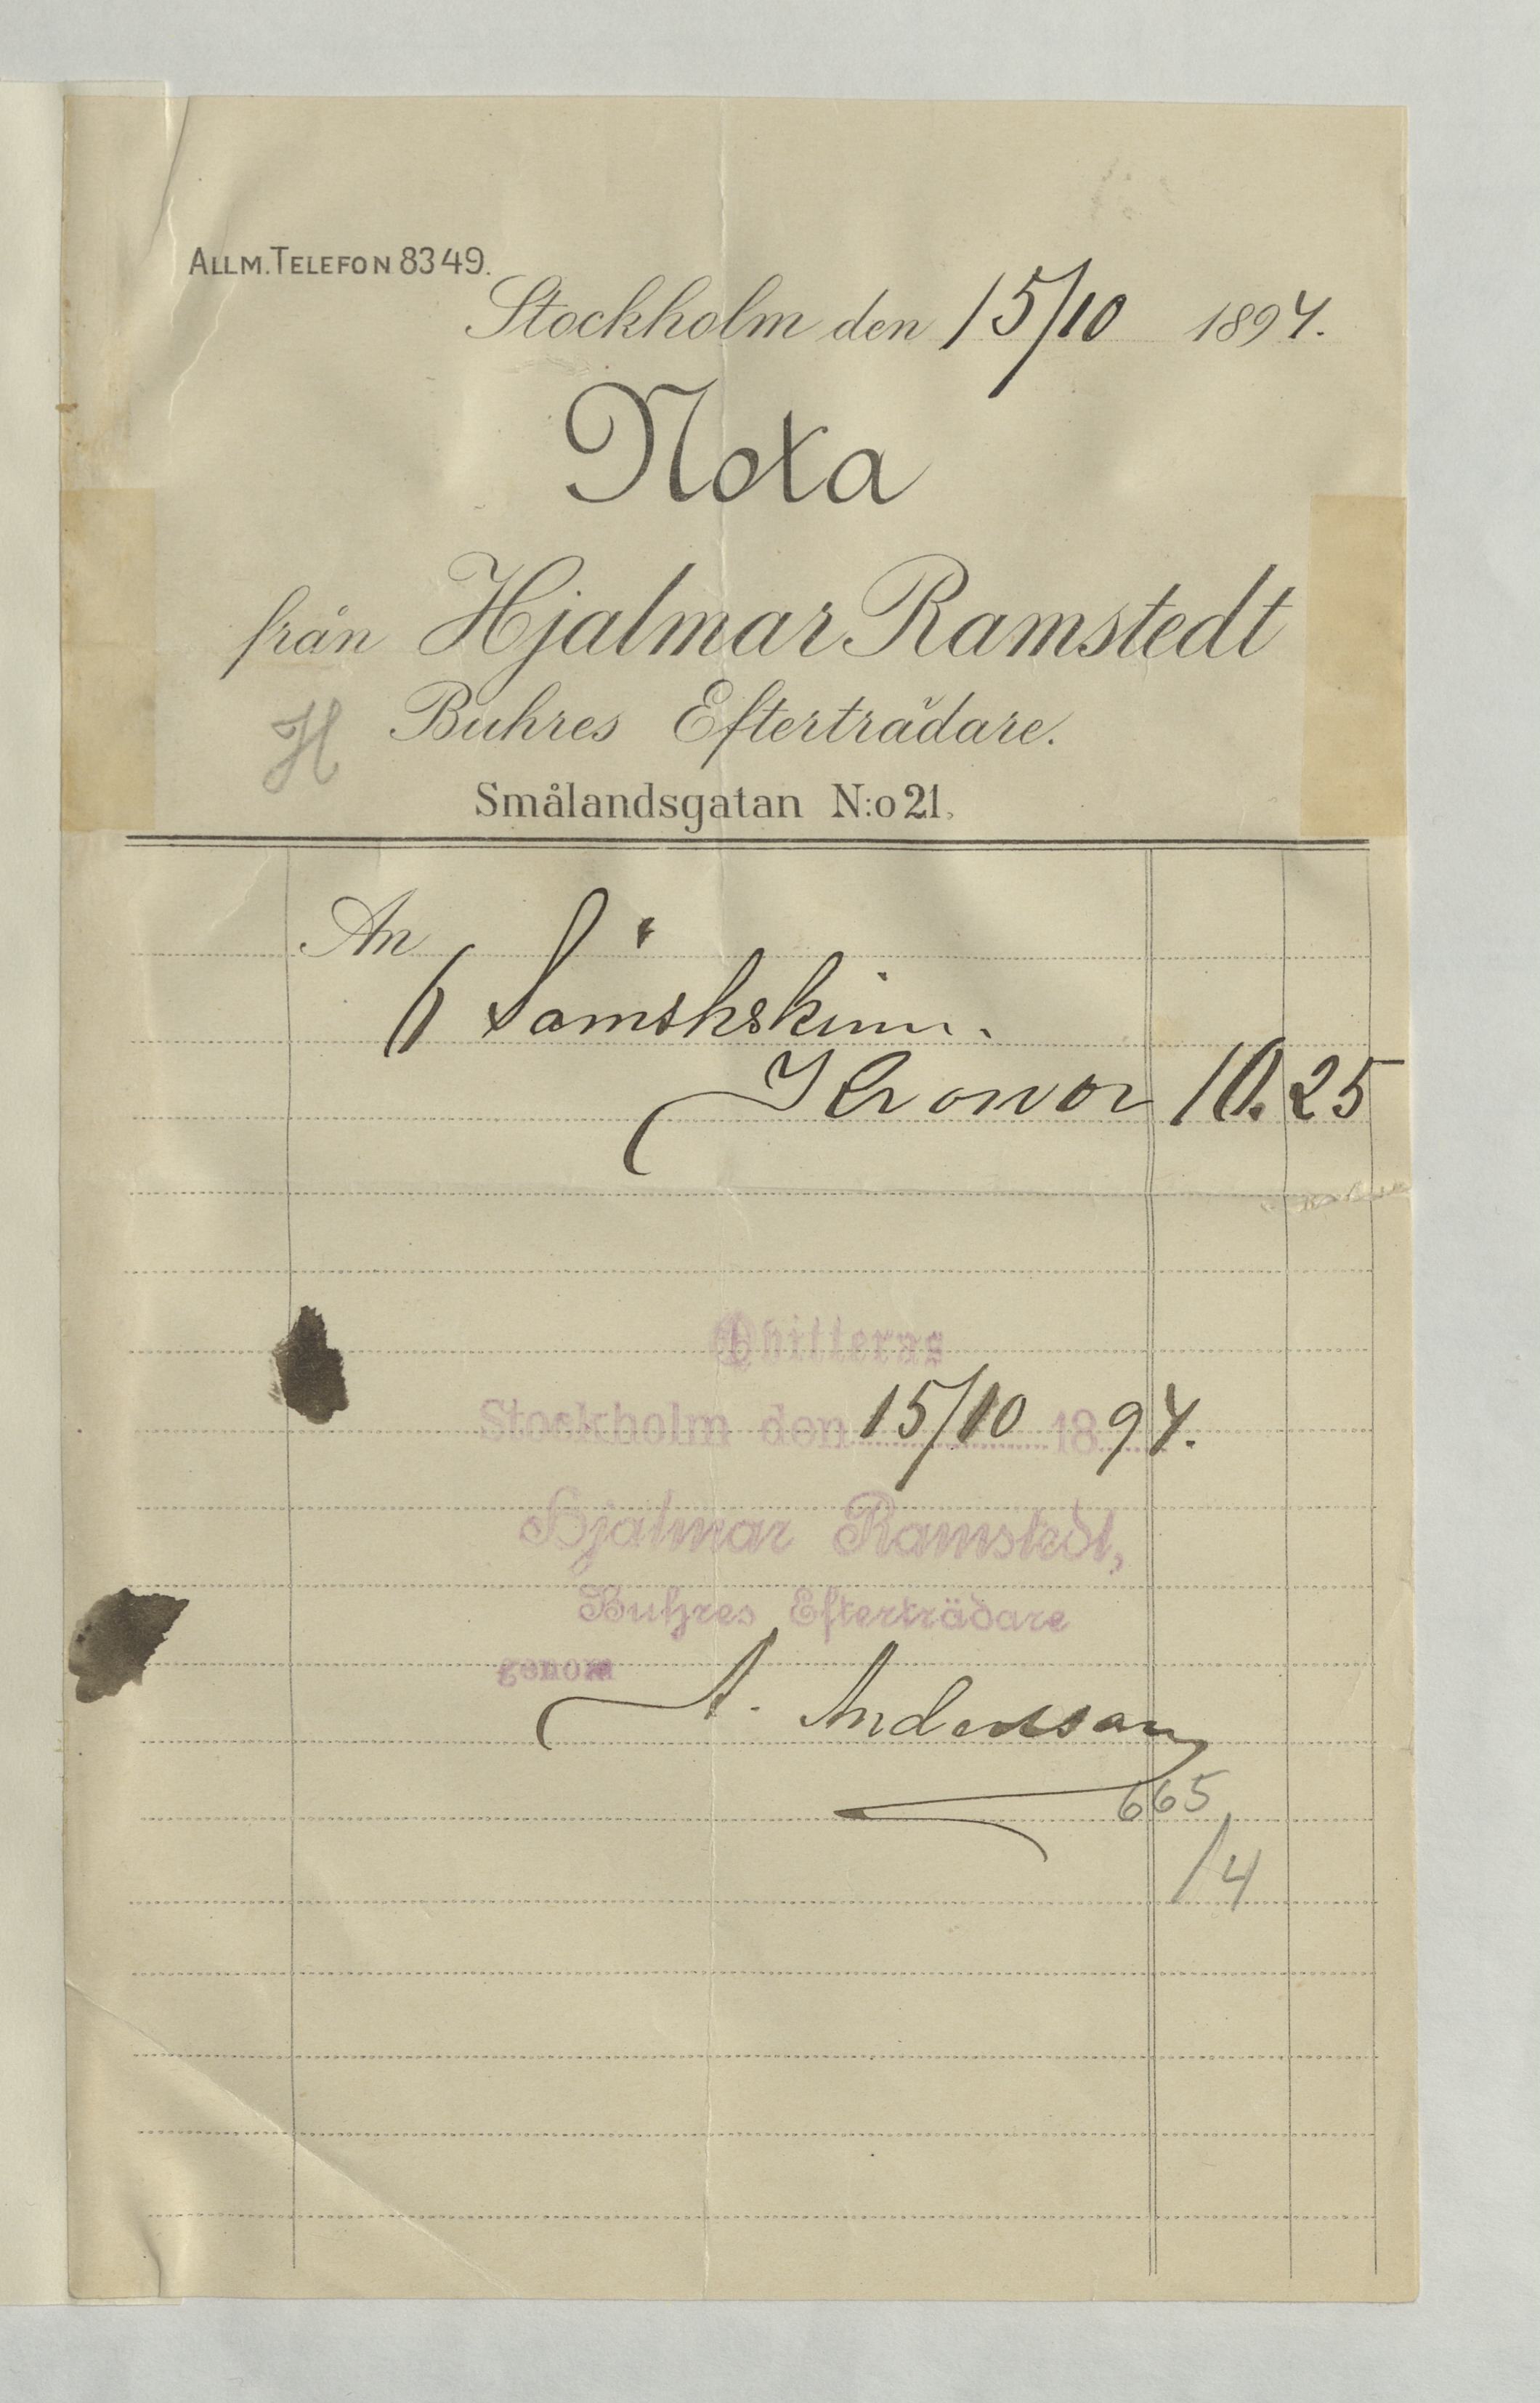 ALLM. TELEFON 8349.
Stockholm den 15/10 1894.
Nota
från Hjalmar Ramstedt
Buhres Efterträdare.
H
Smålandsgatan N:o 21.
An
6 Sämskskinn.
Kronor 10.25
Qvitteras
Stockholm den 15/10 1894.
Hjalmar Ramstedt,
Buhres Efterträdare
genom
A. Andersson
665
/4